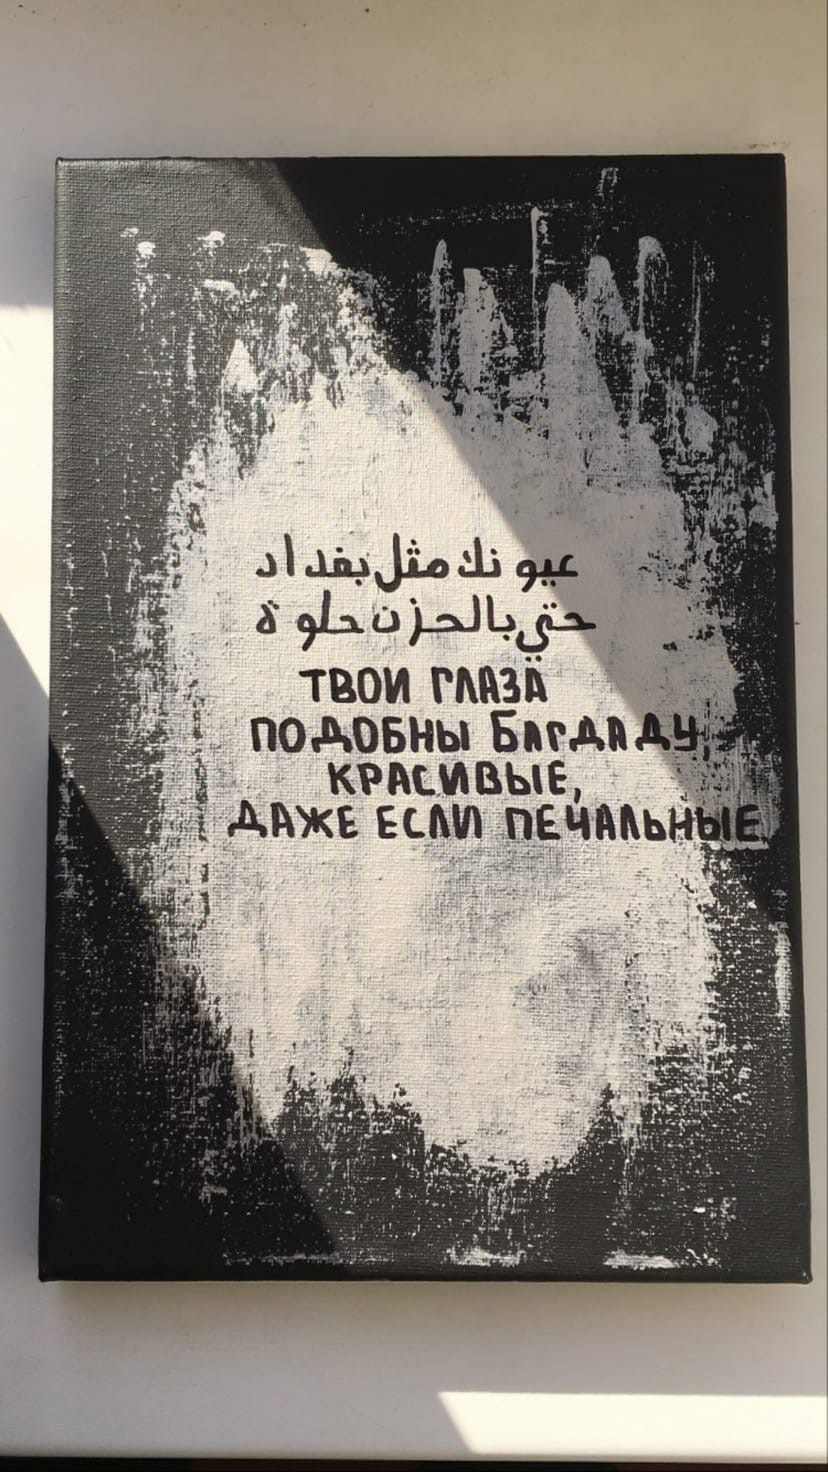 عيو نك مثل بغداد
حتي بالحزن حلو ة
ТВОИ ГЛАЗА
ПОДОБНЫ БАГДАДУ,
КРАСИВЫЕ,
ДАЖЕ ЕСЛИ ПЕЧАЛЬНЫЕ.